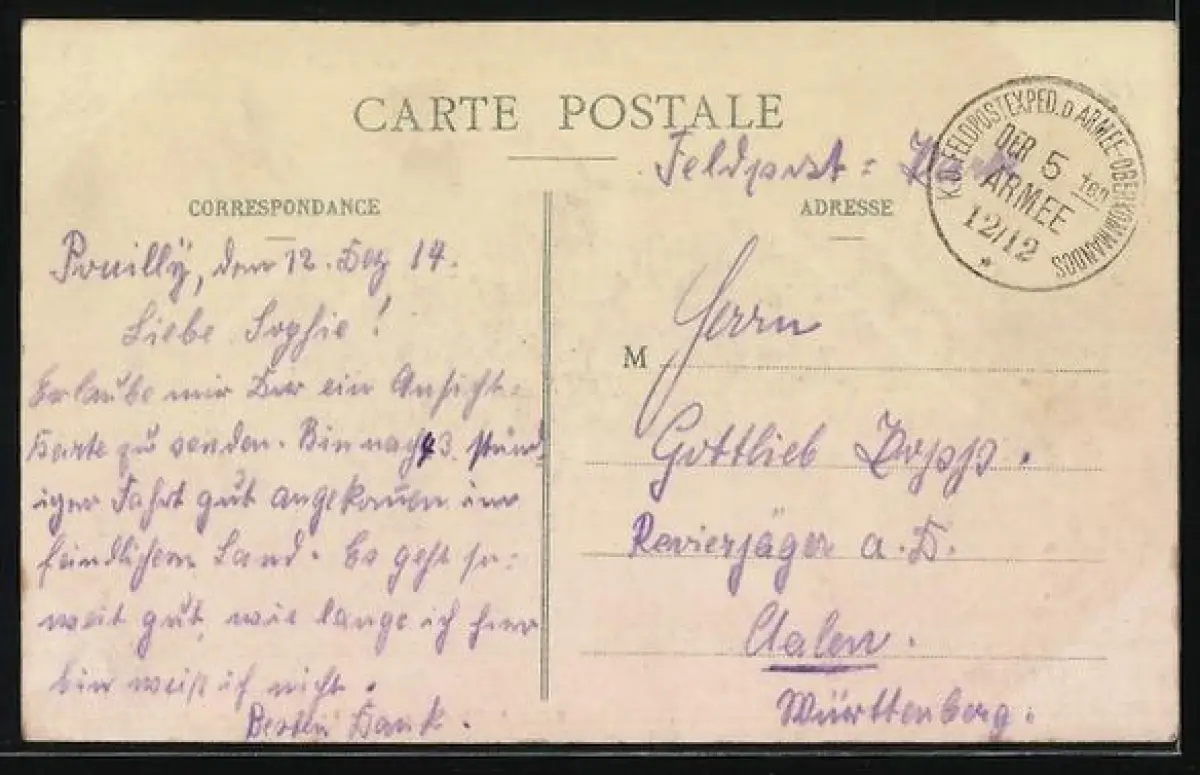 CARTE POSTALE
Feldpost:
K.D. FELDPOSTEXPED. D. ARMEE-OBERKOMMANDOS
DER 5 ten
ARMEE
12/12
CORRESPONDANCE
Pouilly, den 12. Dez 14.
Liebe Sophie!
Erlaube mir Dir ein Ansicht-
karte zu senden. Bin nach 43 stünd
iger Fahrt gut angekommen im
feindlichem Land. Es geht so-
weit gut, wie lange ich hier
bin weiß ich nicht.
Besten Dank.
ADRESSE
M Herrn
Gottlieb
Revierjäger a. D.
Aalen.
Württenberg.